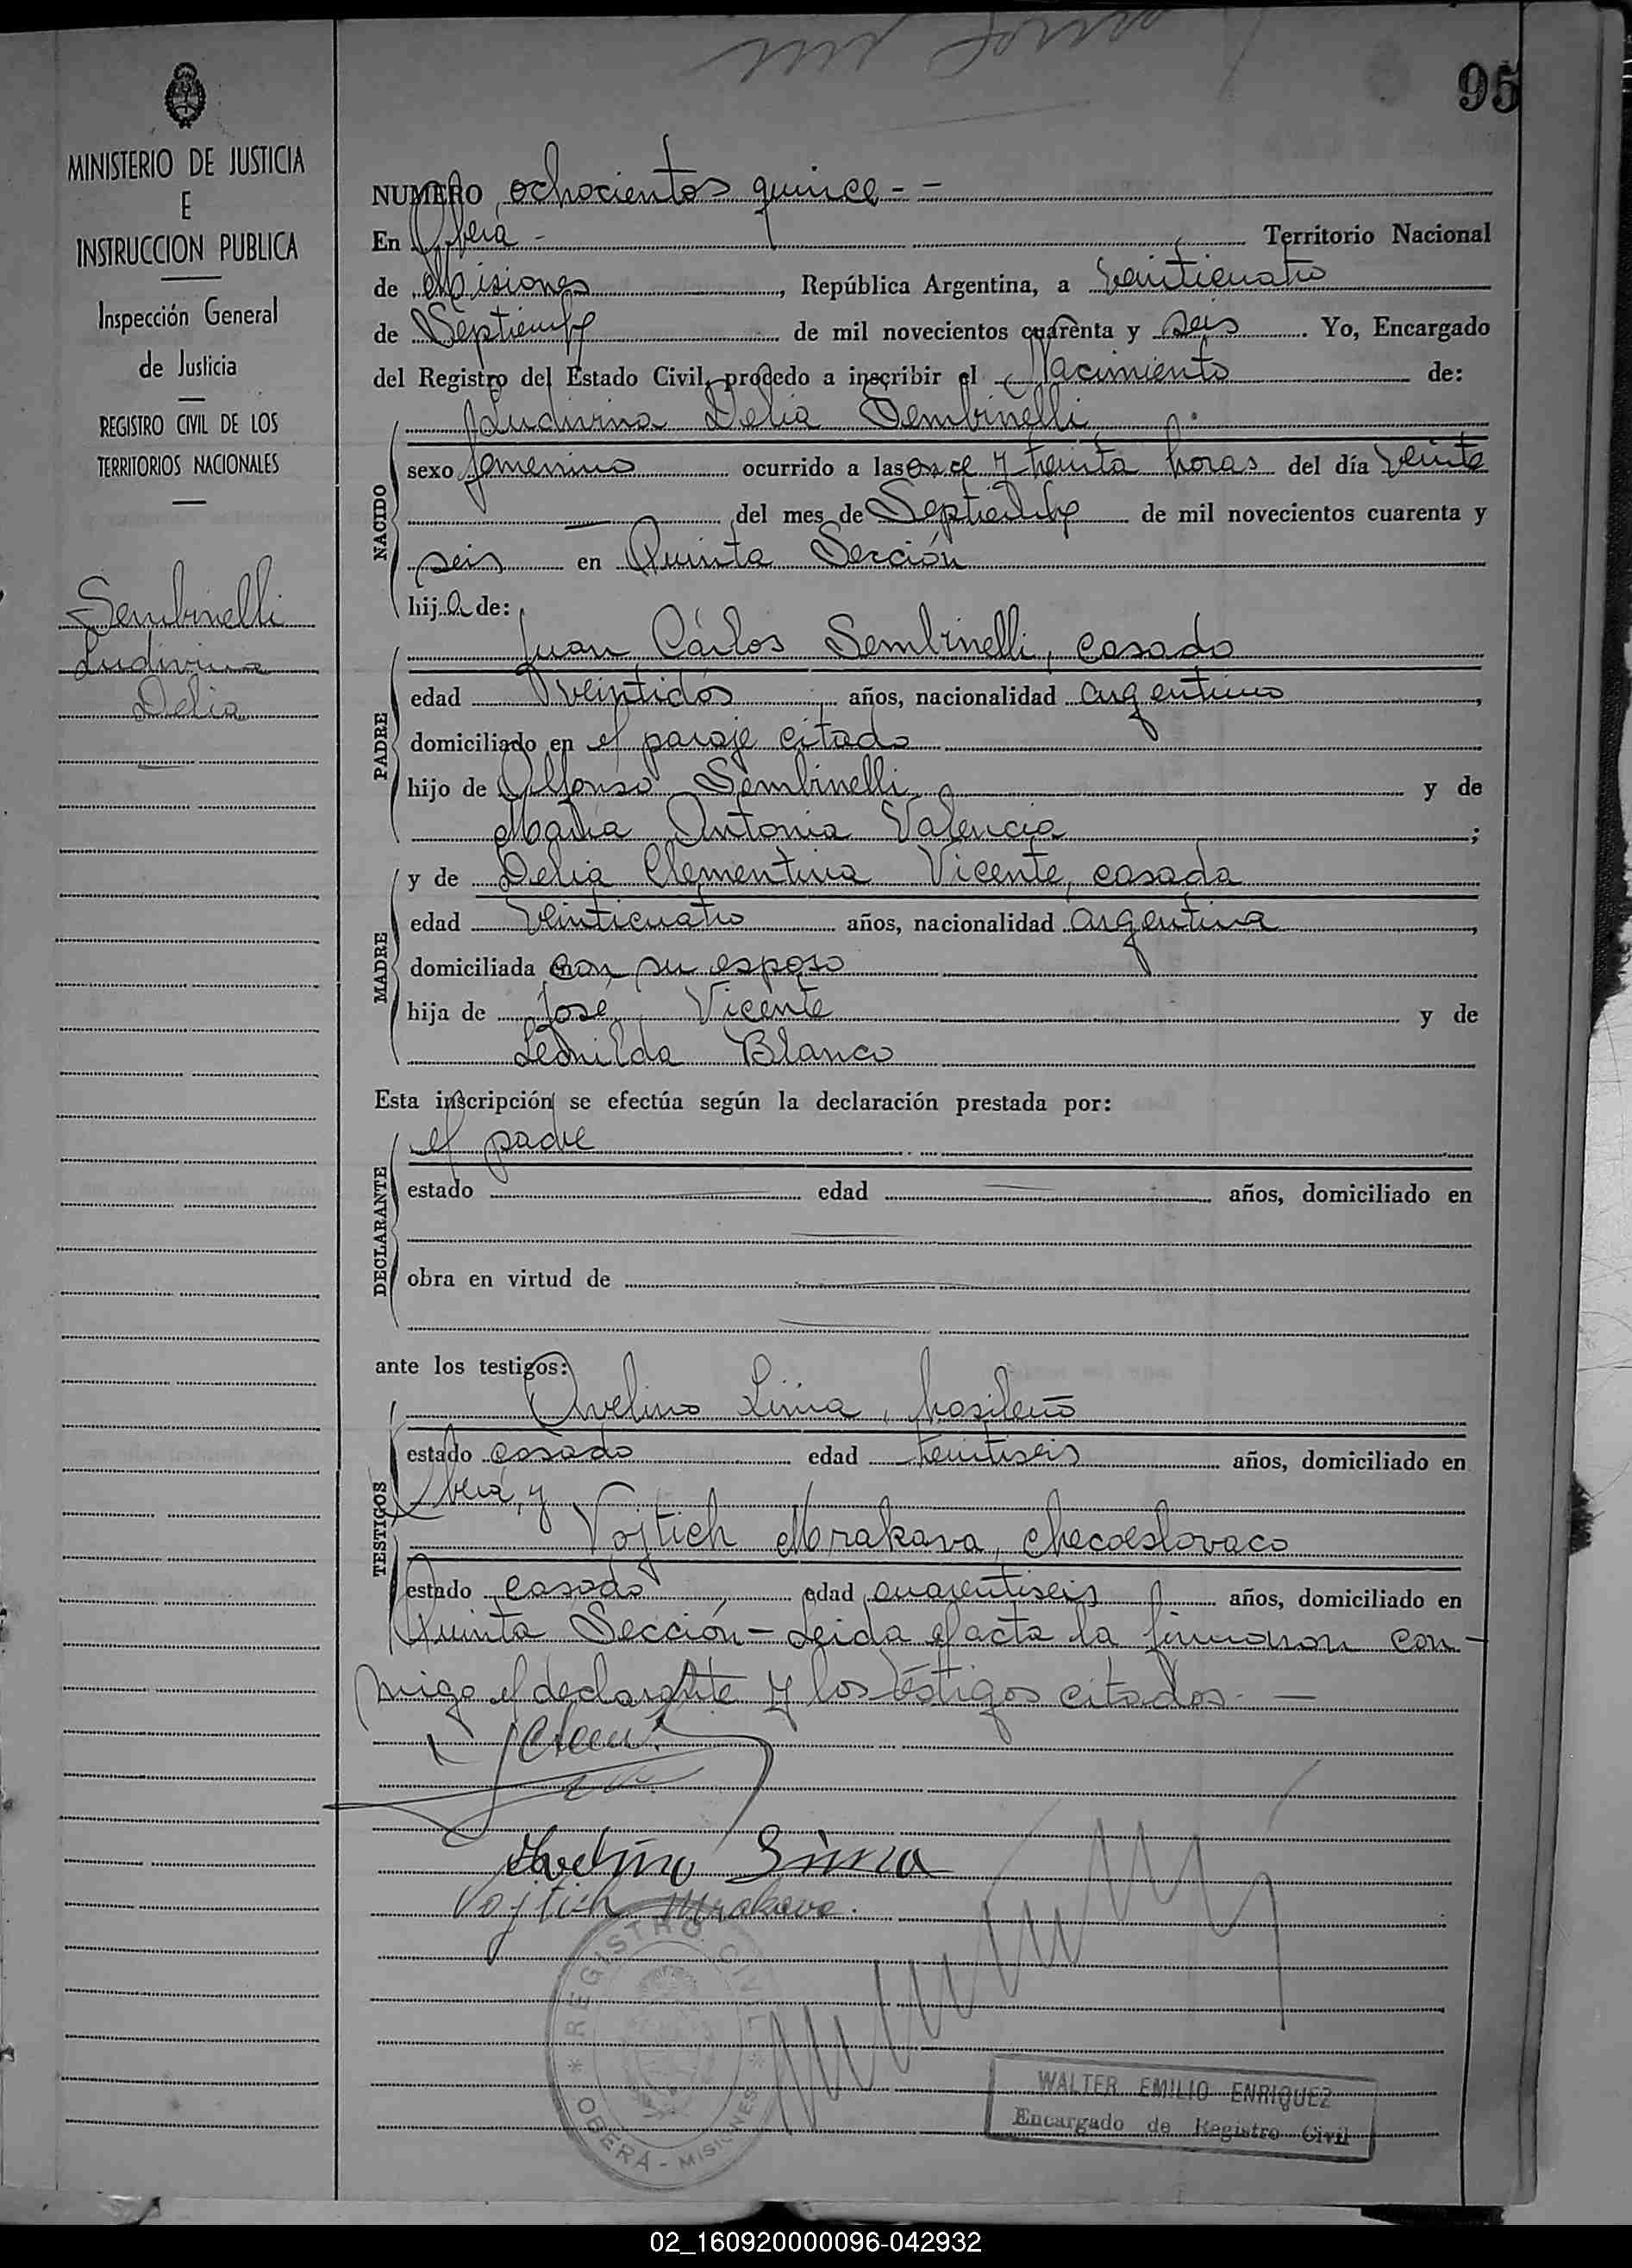 95
MINISTERIO DE JUSTICIA
E
INSTRUCCION PUBLICA
Inspección General
de Justicia
REGISTRO CIVIL DE LOS
TERRITORIOS NACIONALES
Sembinelli
Ludivina
Delia
NUMERO ochocientos quince - -
En Oberá - Territorio Nacional
de Misiones, República Argentina, a veinticuatro
de Septiembre de mil novecientos cuarenta y seis. Yo, Encargado
del Registro del Estado Civil, procedo a inscribir el Nacimiento de:
NACIDO
Ludivina Delia Sembinelli
sexo femenino ocurrido a las once y treinta horas del día veinte
del mes de Septiembre de mil novecientos cuarenta y
seis en Quinta Sección
hija de:
PADRE
Juan Cárlos Sembinelli, casado
edad veintidós años, nacionalidad argentino,
domiciliado en el paraje citado
hijo de Alfonso Sembinelli y de
María Antonia Valencia;
MADRE
y de Delia Clementina Vicente, casada
edad veinticuatro años, nacionalidad argentina,
domiciliada con su esposo
hija de José Vicente y de
Leonilda Blanco
Esta inscripción se efectúa según la declaración prestada por:
DECLARANTE
el padre
estado edad años, domiciliado en
obra en virtud de
ante los testigos:
TESTIGOS
Avelino Lima, brasileño
estado casado edad treintiseis años, domiciliado en
Oberá, y
Vojtich Mrakava, checoeslovaco
estado casado edad cuarentiseis años, domiciliado en
Quinta Sección - Leida el acta la firmaron con-
migo el declarante y los testigos citados. -
Avelino Lima
Vojtich Mrakava.
REGISTRO CIVIL
* OBERÁ - MISIONES *
WALTER EMILIO ENRIQUEZ
Encargado de Registro Civil
02_160920000096-042932